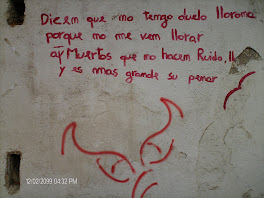 Dicen que no tengo duelo llorona
porque no me ven llorar
ay Muertos que no hacen Ruido, ll
y es mas grande su penar
12/02/2099 04:32 PM